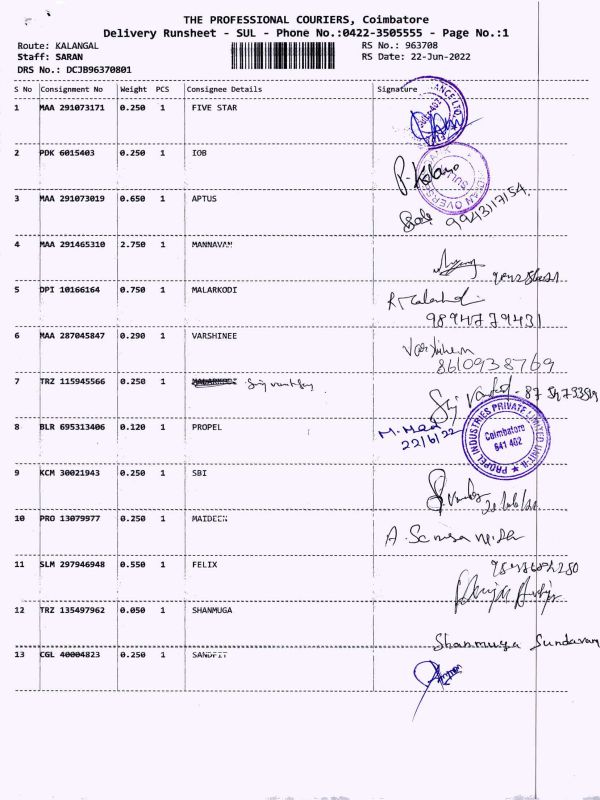 THE PROFESSIONAL COURIERS, Coimbatore
Delivery Runsheet - SUL - Phone No.:0422-3505555 - Page No.:1
Route: KALANGAL RS No.: 963708
Staff: SARAN RS Date: 22-Jun-2022
DRS No.: DCJB96370801
S No Consignment No Weight PCS Consignee Details Signature
1 MAA 291073171 0.250 1 FIVE STAR
2 PDK 6015403 0.250 1 IOB
3 MAA 291073019 0.650 1 APTUS
9943117154
4 MAA 291465310 2.750 1 MANNAVAN
5 DPI 10166164 0.750 1 MALARKODI
9894779431
6 MAA 287045847 0.290 1 VARSHINEE
8610938769
7 TRZ 115945566 0.250 1
8 BLR 695313406 0.120 1 PROPEL
22/6/22
PROPEL INDUSTRIES PRIVATE LIMITED UNIT-II
Coimbatore
641 402
9 KCM 30021943 0.250 1 SBI
10 PRO 13079977 0.250 1 MAIDEEN
11 SLM 297946948 0.550 1 FELIX
12 TRZ 135497962 0.050 1 SHANMUGA
Shanmuga Sundaram
13 CGL 40004823 0.250 1 SANDFIT